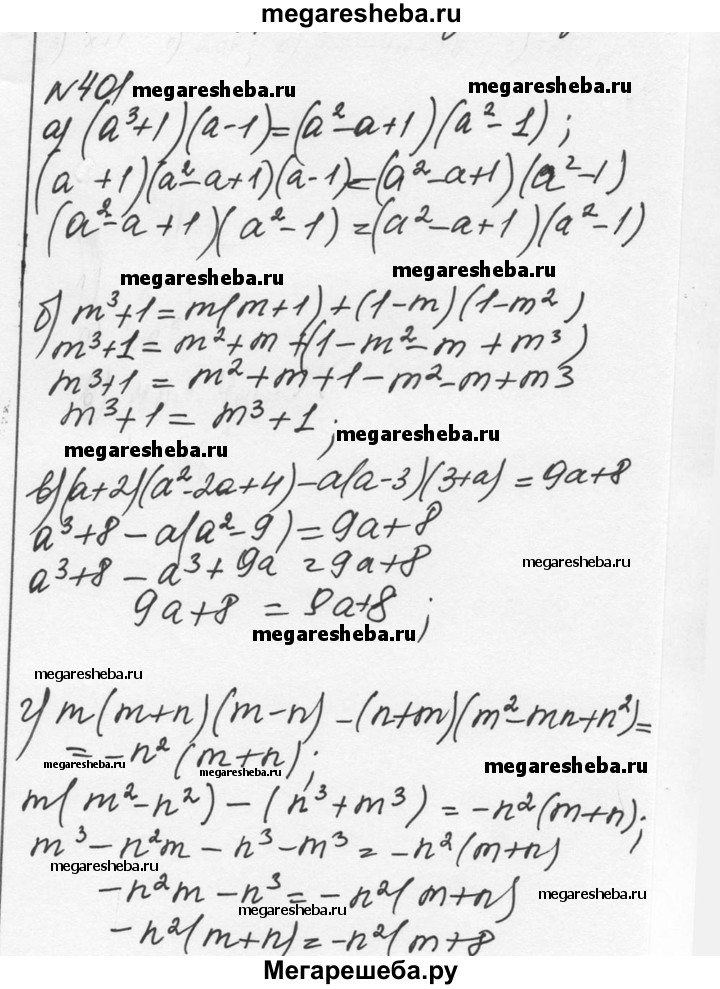 megaresheba.ru
№401
megaresheba.ru megaresheba.ru
а) (a³+1)(a-1)=(a²-a+1)(a²-1);
(a +1)(a²-a+1)(a-1)=(a²-a+1)(a²-1)
(a²-a+1)(a²-1)=(a²-a+1)(a²-1)
megaresheba.ru megaresheba.ru
б) m³+1=m(m+1)+(1-m)(1-m²)
m³+1=m²+m+(1-m²-m+m³)
m³+1=m²+m+1-m²-m+m3
m³+1=m³+1;
megaresheba.ru megaresheba.ru
в) (a+2)(a²-2a+4)-a(a-3)(3+a)=9a+8
a³+8-a(a²-9)=9a+8
a³+8-a³+9a=9a+8
megaresheba.ru
9a+8=9a+8;
megaresheba.ru
megaresheba.ru
г) m(m+n)(m-n)-(n+m)(m²-mn+n²)=
=-n²(m+n);
megaresheba.ru megaresheba.ru megaresheba.ru
m(m²-n²)-(n³+m³)=-n²(m+n);
m³-n²m-n³-m³=-n²(m+n)
megaresheba.ru
-n²m-n³=-n²(m+n)
megaresheba.ru megaresheba.ru
-n²(m+n)=-n²(m+8
Мегарешеба.ру